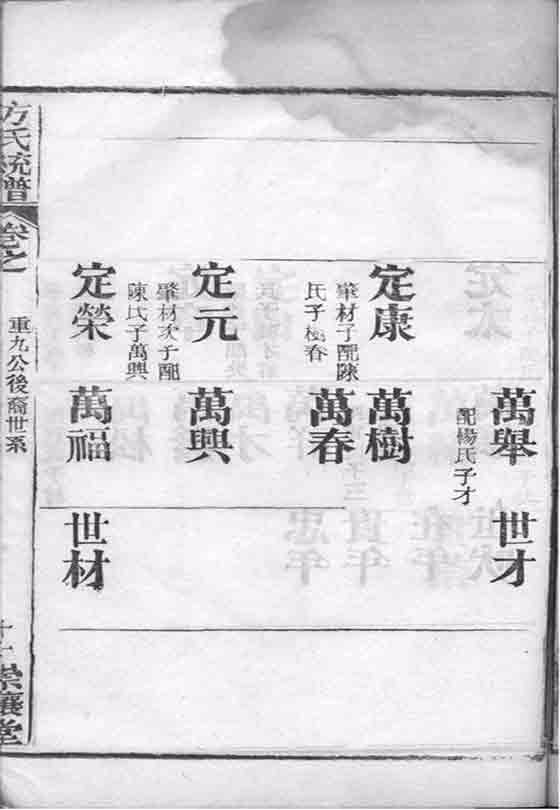 萬舉
配楊氏子才
世才
定康
肇材子配陳
氏子樹春
萬樹
萬春
定元
肇材次子配
陳氏子萬興
萬興
定榮
萬福
世材
方氏統譜
卷之
重九公後裔世系
十一
崇讓堂